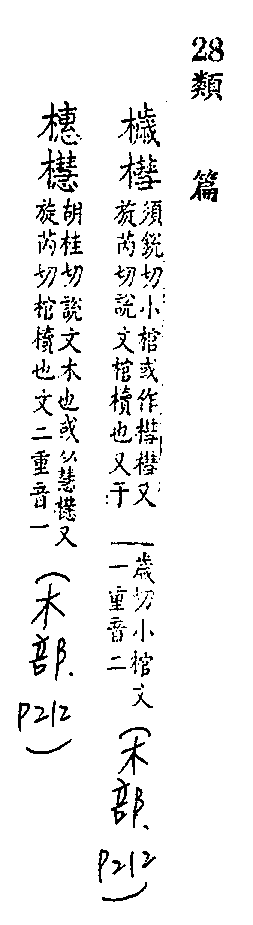 28類篇
須銳切小棺或作㯔槥又
旋芮切說文棺櫝也又于
歲切小棺文
一重音二
(木部.P212)
橞
胡桂切說文木也或从慧又
旋芮切棺櫝也文二重音一
(木部.P212)